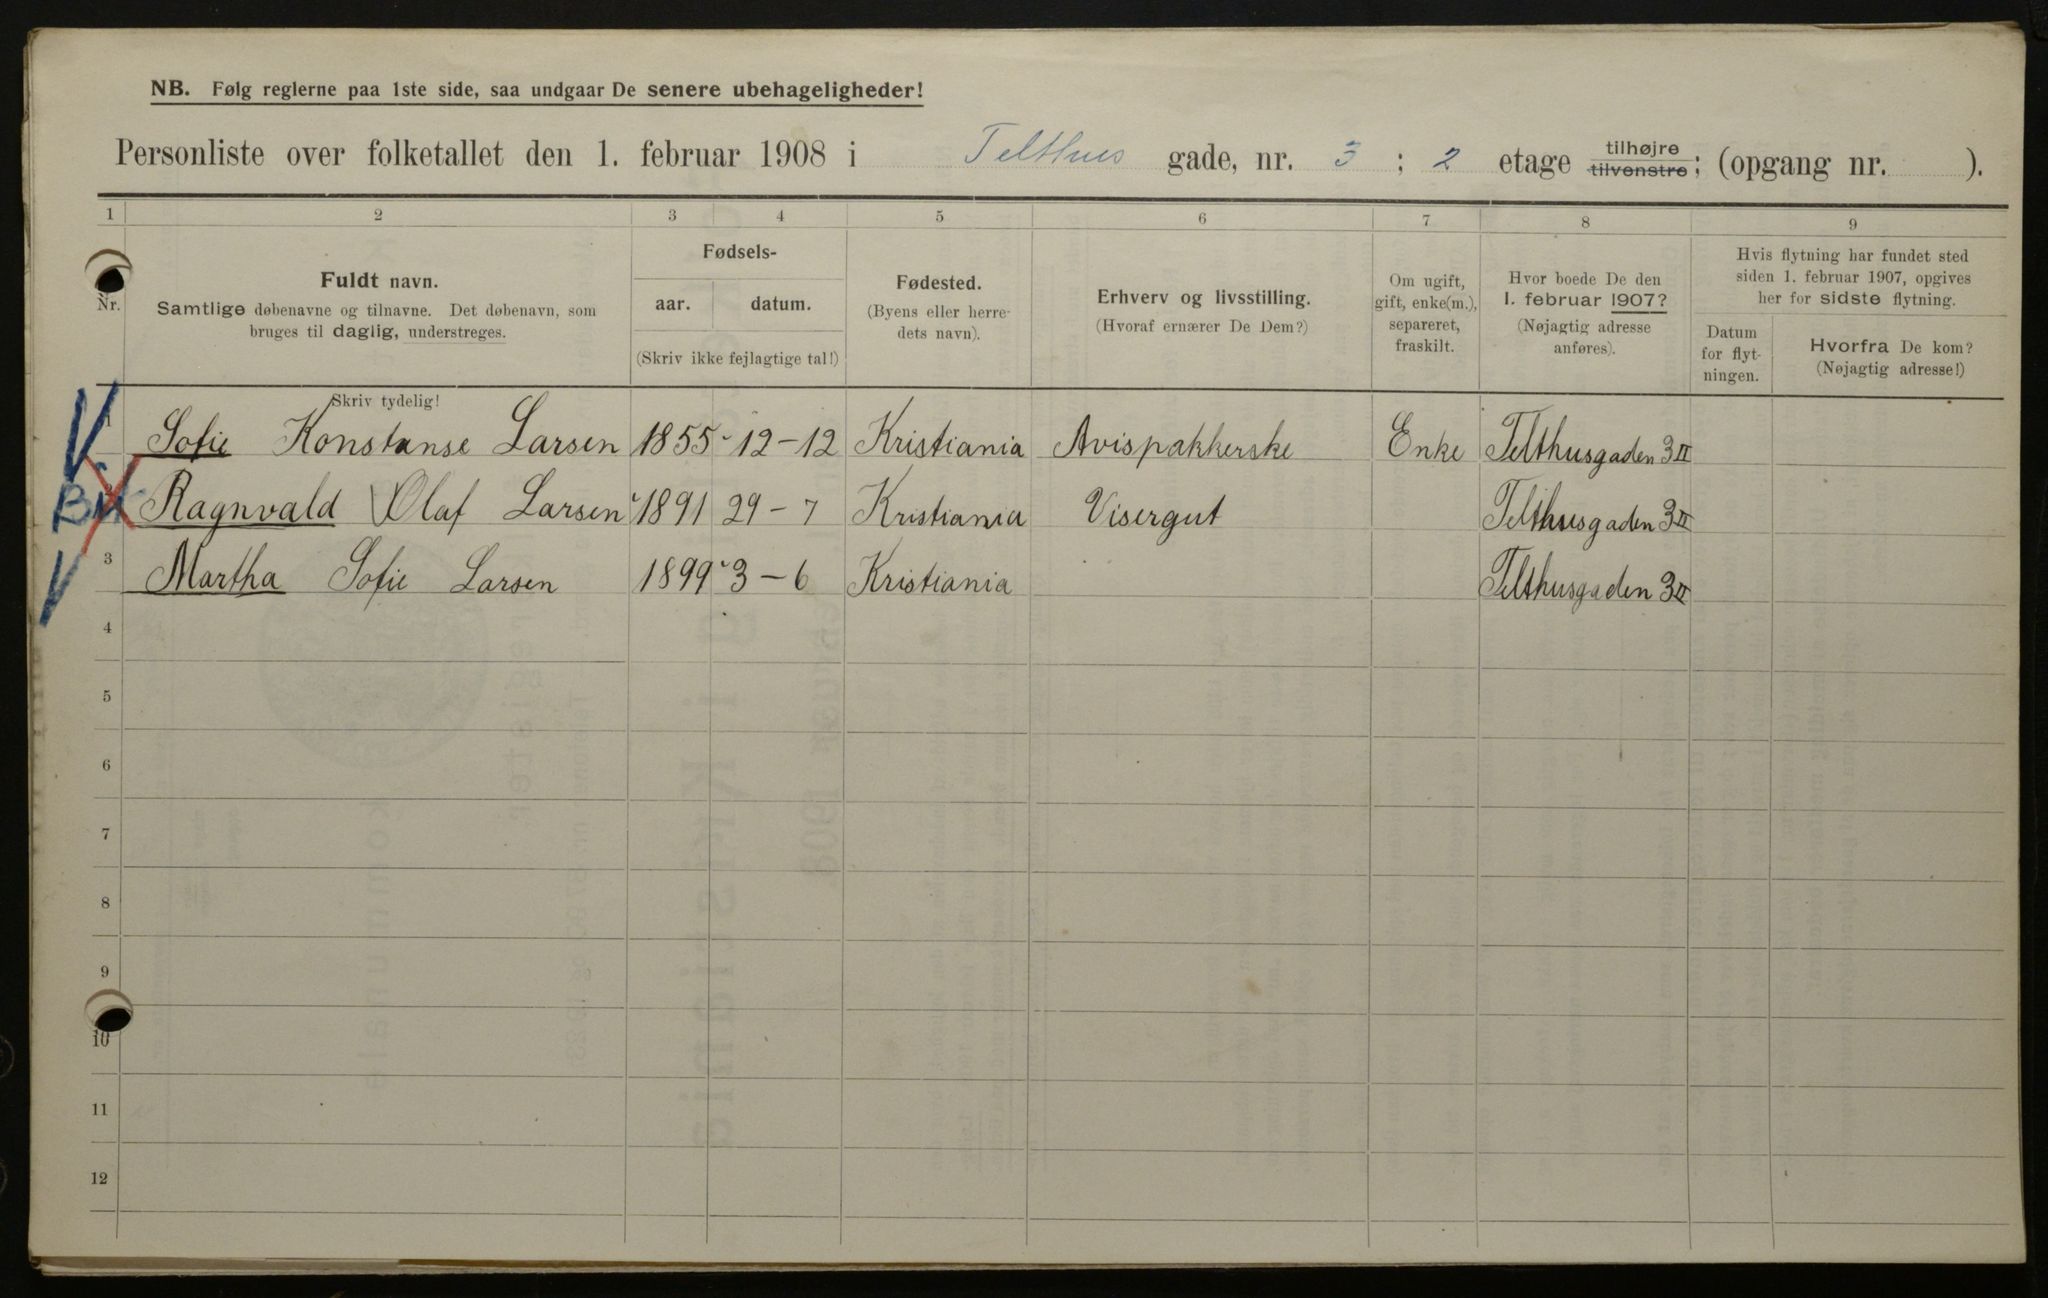 NB. Følg reglerne paa 1ste side, saa undgaar De senere ubehageligheder!
Personliste over folketallet den 1. februar 1908 i Telthus gade, nr. 3 ; 2 etage tilhøjre tilvenstre; (opgang nr. ).
1 2 3 4 5 6 7 8 9
Nr.
Fuldt navn.
Samtlige døbenavne og tilnavne. Det døbenavn, som
bruges til daglig, understreges.
Skriv tydelig!
Fødsels-
aar. datum.
(Skriv ikke fejlagtige tal!)
Fødested.
(Byens eller herre-
dets navn).
Erhverv og livsstilling.
(Hvoraf ernærer De Dem?)
Om ugift,
gift, enke(m.),
separeret,
fraskilt.
Hvor boede De den
1. februar 1907?
(Nøjagtig adresse
anføres).
Hvis flytning har fundet sted
siden 1. februar 1907, opgives
her for sidste flytning.
Datum
for flyt-
ningen.
Hvorfra De kom?
(Nøjagtig adresse!)
1 Sofie Konstanse Larsen 1855 12-12 Kristiania Avispakkerske Enke Telthusgaden 3 II
Ragnvald Olaf Larsen 1891 29-7 Kristiania Visergut Telthusgaden 3 II
3 Martha Sofie Larsen 1899 3-6 Kristiania Telthusgaden 3 II
4
5
6
7
8
9
10
11
12